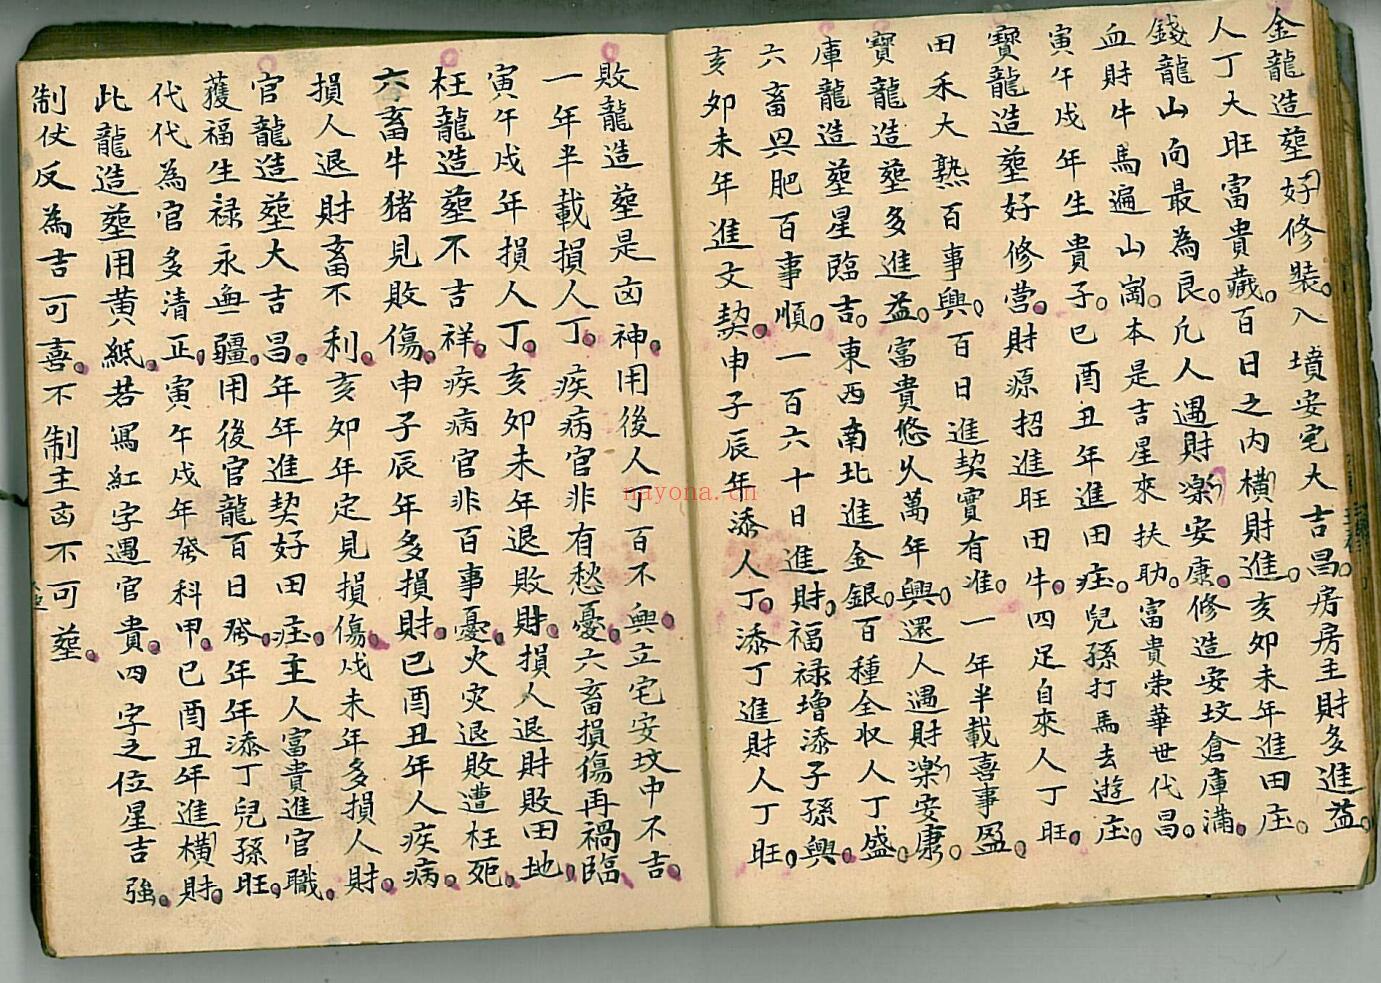 金龍造塟好修裝。入墳安宅大吉昌。房房主財多進益。
人丁大旺富貴藏。百日之内横財進。亥卯未年進田庄。
錢龍山向最為良。凢人遇財樂安康。修造安坟倉庫满。
血財牛馬遍山崗。本是吉星來扶助。富貴荣華世代昌。
寅午戌年生貴子。巳酉丑年進田庄。兒孫打馬去遊庄。
寳龍造塟好修营。財源招進旺田牛。四足自來人丁旺。
田禾大熟百事興。百日進契寳有准。一年半載喜事盈。
寳龍造塟多進益。富貴悠久萬年興。還人遇財樂安康。
庫龍造塟星臨吉。東西南北進金銀。百種全収人丁盛。
六畜興肥百事順。一百六十日進財。福禄增添子孫興。
亥卯未年進文契。申子辰年添人丁。添丁進財人丁旺。
敗龍造塟是凶神。用後人丁百不興。立宅安坟中不吉。
一年半載損人丁。疾病官非有愁憂。六畜損傷再禍臨
寅午戌年損人丁。亥卯未年退敗財。損人退財敗田地。
枉龍造塟不吉祥。疾病官非百事憂。火灾退敗遭枉死。
六畜牛猪見敗傷。申子辰年多損財。巳酉丑年人疾病。
損人退財畜不利。亥卯年定見損傷。戌未年多損人財。
官龍造塟大吉昌。年年進契好田庄。主人富貴進官職。
獲福生禄永無疆。用後官龍百日發。年年添丁兒孫旺。
代代為官多清正。寅午戌年發科甲。巳酉丑年進横財。
此龍造塟用黄紙。若寫紅字遇官貴。四字之位星吉強。
制伏反為吉可喜。不制主凶不可塟。
nayona.cn